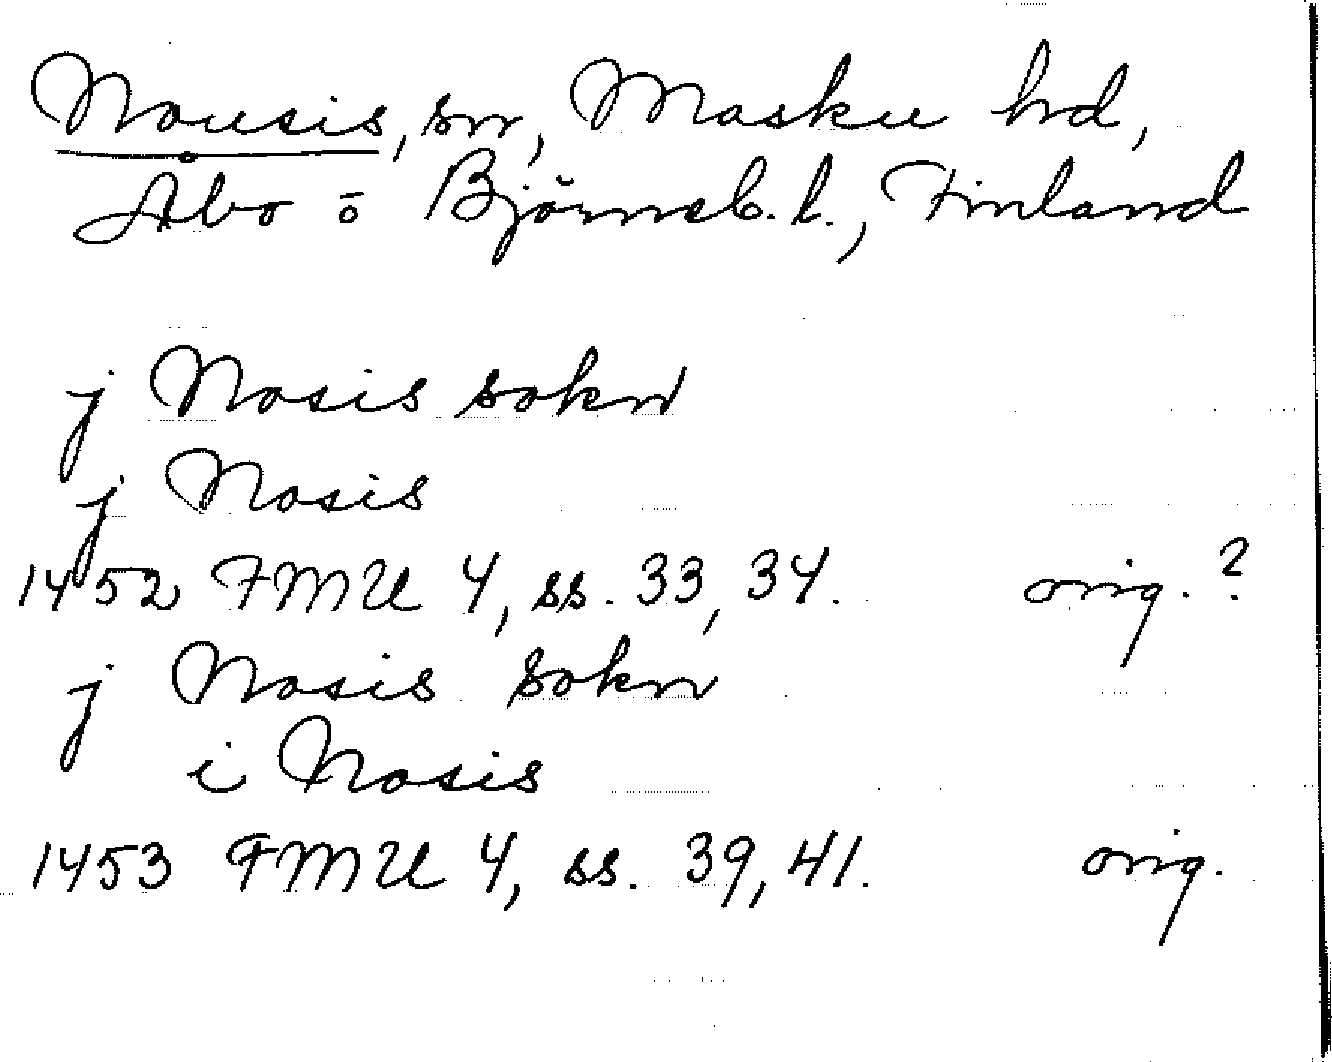 Nousis, sn, Masku hd,
Åbo o Björneb. l., Finland
j Nosis sokn
j Nosis
1452 FMU 4, ss. 33, 34. orig. ?
j Nosis sokn
i Nosis
1453 FMU 4, ss. 39, 41. orig.